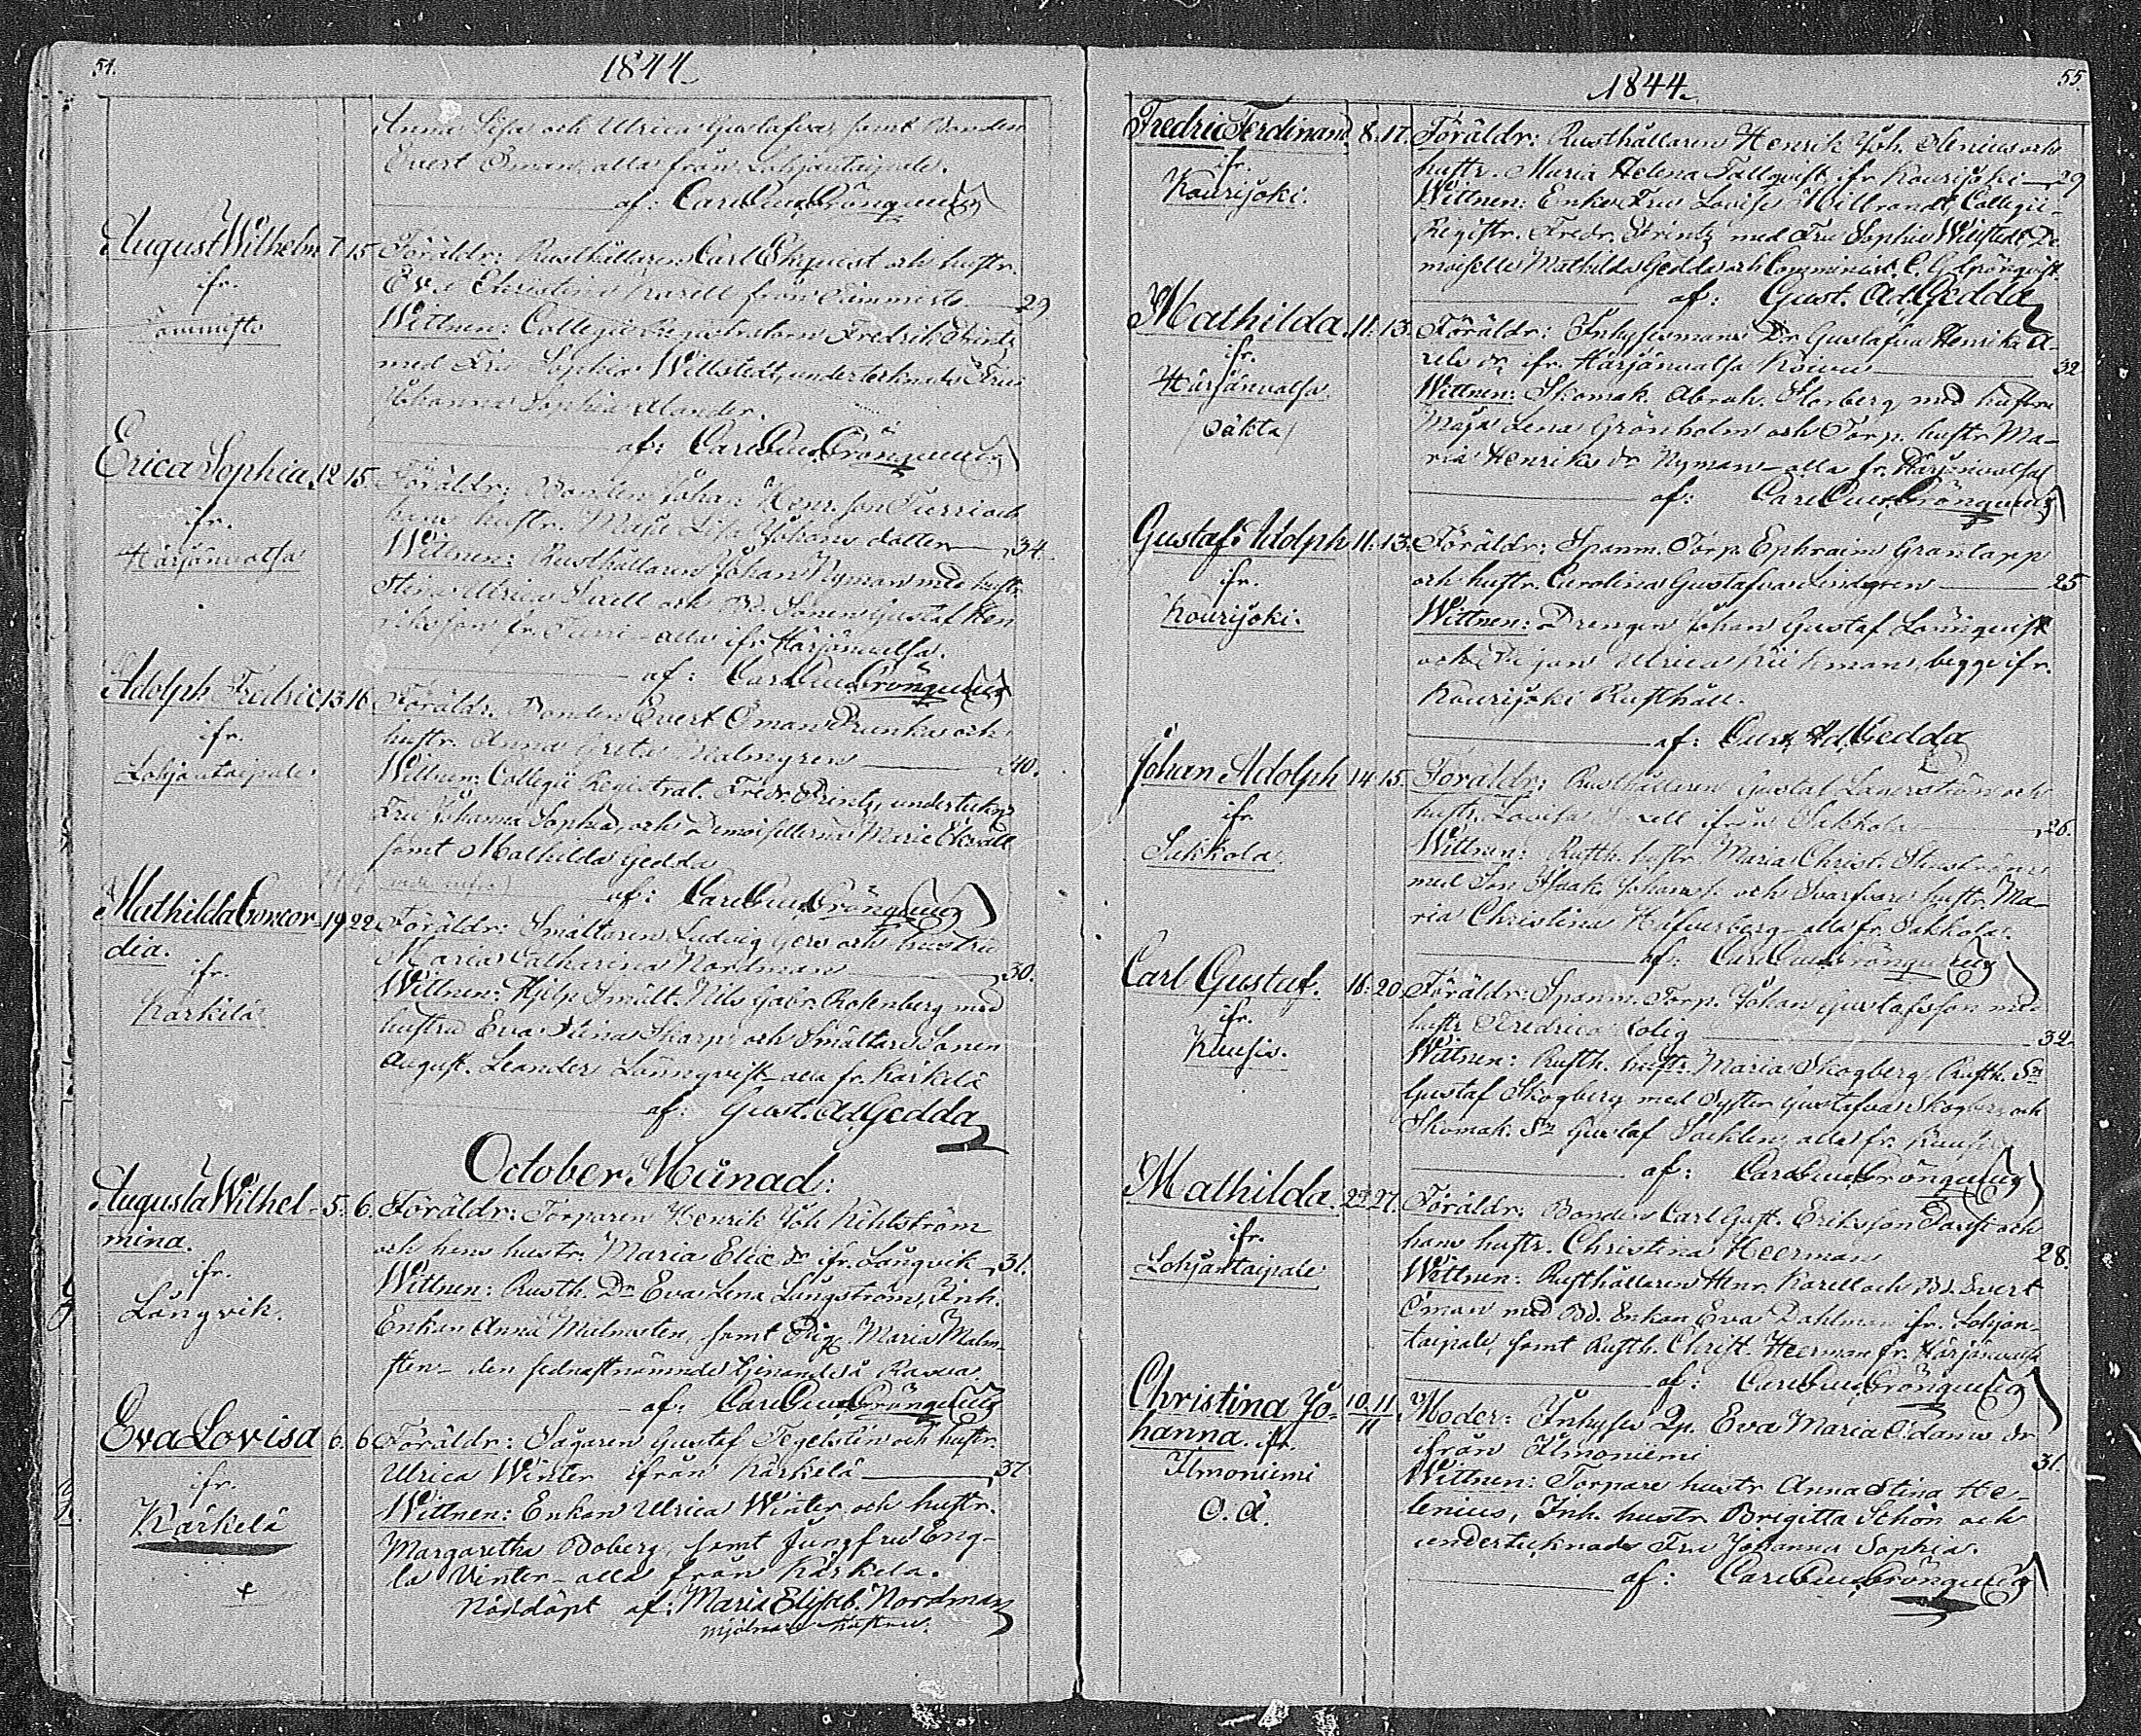 54.
1844
Anna Lisa och Ulrica Gustafva, samt Bonden
Evert Öman, alla från Lohjantaipale.
af: Carl Gust. Grönqvist
August Wilhelm 7. 15. Föräldr: Rusthållaren Carl Ekqvist och hustr.
ifr. Eva Christina Karell från 29
Wittnen: Collegii Registratorn Fredrik Printz
med Fru Sophia Willstedt, undertecknads Fru
Johanna Sophia Alander.
af: Carl Gust. Grönqvist
Erica Sophia 12. 15. Föräldr: Bonden Johan Henr. son Turri och
ifr. hans hustr. Maja Lisa Johans dotter 34.
Härjänvatsa Wittnen: Rusthållaren Johan Nyman med hustr.
Stina Ulrica och Bd. Sonen Gustaf Hen
riksson fr. Turri alla ifr. Härjänvatsa.
af: Carl Gust. Grönqvist
Adolph Fredric 13. 16. Föräldr. Bonden Evert Öman och
ifr. hustr. Anna Greta Malmgren 40.
Lohjantaipale Wittnen: Collegii Registrat. Fredr. Printz, undertekn.
Fru Johanna Sophia, och Demoisellerna Marie Ekvall
samt Mathilda Gedda
af: Carl Gust. Grönqvist
Mathilda Concor- 19. 22. Föräldr: Smältaren Ludvig Gers och hustru
dia. Maria Catharina Nordman 30.
ifr. Wittnen: Hjelp Smält. Nils Gabr. Rotenberg med
Kärkelä hustru Eva Stina Skarp och Smältar Sonen
August. Leander Lönnqvist alla fr. Kärkelä
af: Gust. Ad Gedda
October Månad:
Augusta Wilhel- 5. 6. Föräldr: Torparen Henrik Joh Kihlström
mina. och hans hustr. Maria Elic dr ifr. Långvik 31.
ifr. Wittnen: Rusth. Dr Eva Lena Lungström, Inh.
Långvik. Enkan Anna Malmsten, samt Pig. Maria Malm-
sten den sednastnämnde tjenande å
af: Carl Gust. Grönqvist
Eva Lovisa 6. 6. Föräldr: Sågaren Gustaf Tegelstén och hustr.
ifr. Ulrica Winter ifrån Kärkelä 37
Kärkelä Wittnen: Enkan Ulrica Winter och hustr.
Margaretha Boberg, samt Jungfru Eng-
+ la Vinter alla från Kärkela.
Nöddöpt af: Maria Elisab. Nordman
mjölnare hustru.
55.
1844
Fredric Ferdinand. 8. 17. Föräldr: Rusthållaren Henrik Joh. Alenius och
ifr. hustr. Maria Helena Tallqvist ifr Kourijoki 29
Kourijoki. Wittnen: Enke Fru Lovisa Hillbrandt, Collegii
Registr. Fredr. Printz med Fru Sophia Willstedt De
moiselle Mathilda Gedda och Comminist. C. G. Grönqvist
af: Gust. Ad. Gedda
Mathilda. 11. 13. Föräldr: Inhysesmans Dr Gustafva Henrika A-
ifr. rels dr, ifr. Härjänvatsa Koivu 32
Härjänvatsa. Wittnen: Skomak. Abrah. Storberg med hustru
oäkta Maja Lena Grönholm och Torp. hustr. Ma-
ria Henriks dr Nyman alla fr. Härjänvatsa
af: Carl Gust. Grönqvist
Gustaf Adolph 11. 13. Föräldr: Spanm. Torp. Ephraim Grantapp
ifr. och hustr. Carolina Gustafva Lindgren 25
Kourijoki. Wittnen: Drengen Johan Gustaf Lönnqvist
och Pigan Ulrica begge ifr.
Kourijoki Rusthåll.
af: Gust. Ad. Gedda
Johan Adolph 14. 15. Föräldr: Rusthållaren Gustaf Lagerström och
ifr hustr. Lovisa ifrån Sakkola 26.
Sakkola. Wittnen: Rusth. hustr. Maria Christ.
med Son Isaak Johans s. och Svarfvare hustr. Ma-
ria Christina Häfverberg alla fr. Sakkola.
af: Carl Gust. Grönqvist
Carl Gustaf. 18. 20. Föräldr: Spanm. Torp. Johan Gustafsson med
ifr. hustr Fredrica 32.
Kuusis. Wittnen: Rusth. hustr. Maria Skogberg, Rusth. Sn
Gustaf Skogberg med Syster Gustafva Skogberg och
Skomak. Sn Gustaf alla fr.
af: Carl Gust. Grönqvist
Mathilda. 27. Föräldr: Bonden Carl Gust. Eriksson och
ifr. hans hustr. Christina Heerman 28.
Lohjantaipale Wittnen: Rusthållaren Henr. Karell och Bd. Evert
Öman med Bd. Enkan Eva Dahlman ifr. Lohjan-
taipale, samt Rusth. Christ. Heerman fr. Härjänvatsa
af: Carl Gust. Grönqvist
Christina Jo- 10. 11. Moder: Inhyses Qp. Eva Maria Adams dr
hanna. ifr. 11 ifrån Ilmoniemi 31.
Ilmoniemi Wittnen: Torpare hustr Anna Stina He-
O. Ä. lenius, Inh. hustr Brigitta Schön och
undertecknads Fru Johanna Sophia.
af: Carl Gust. Grönqvist